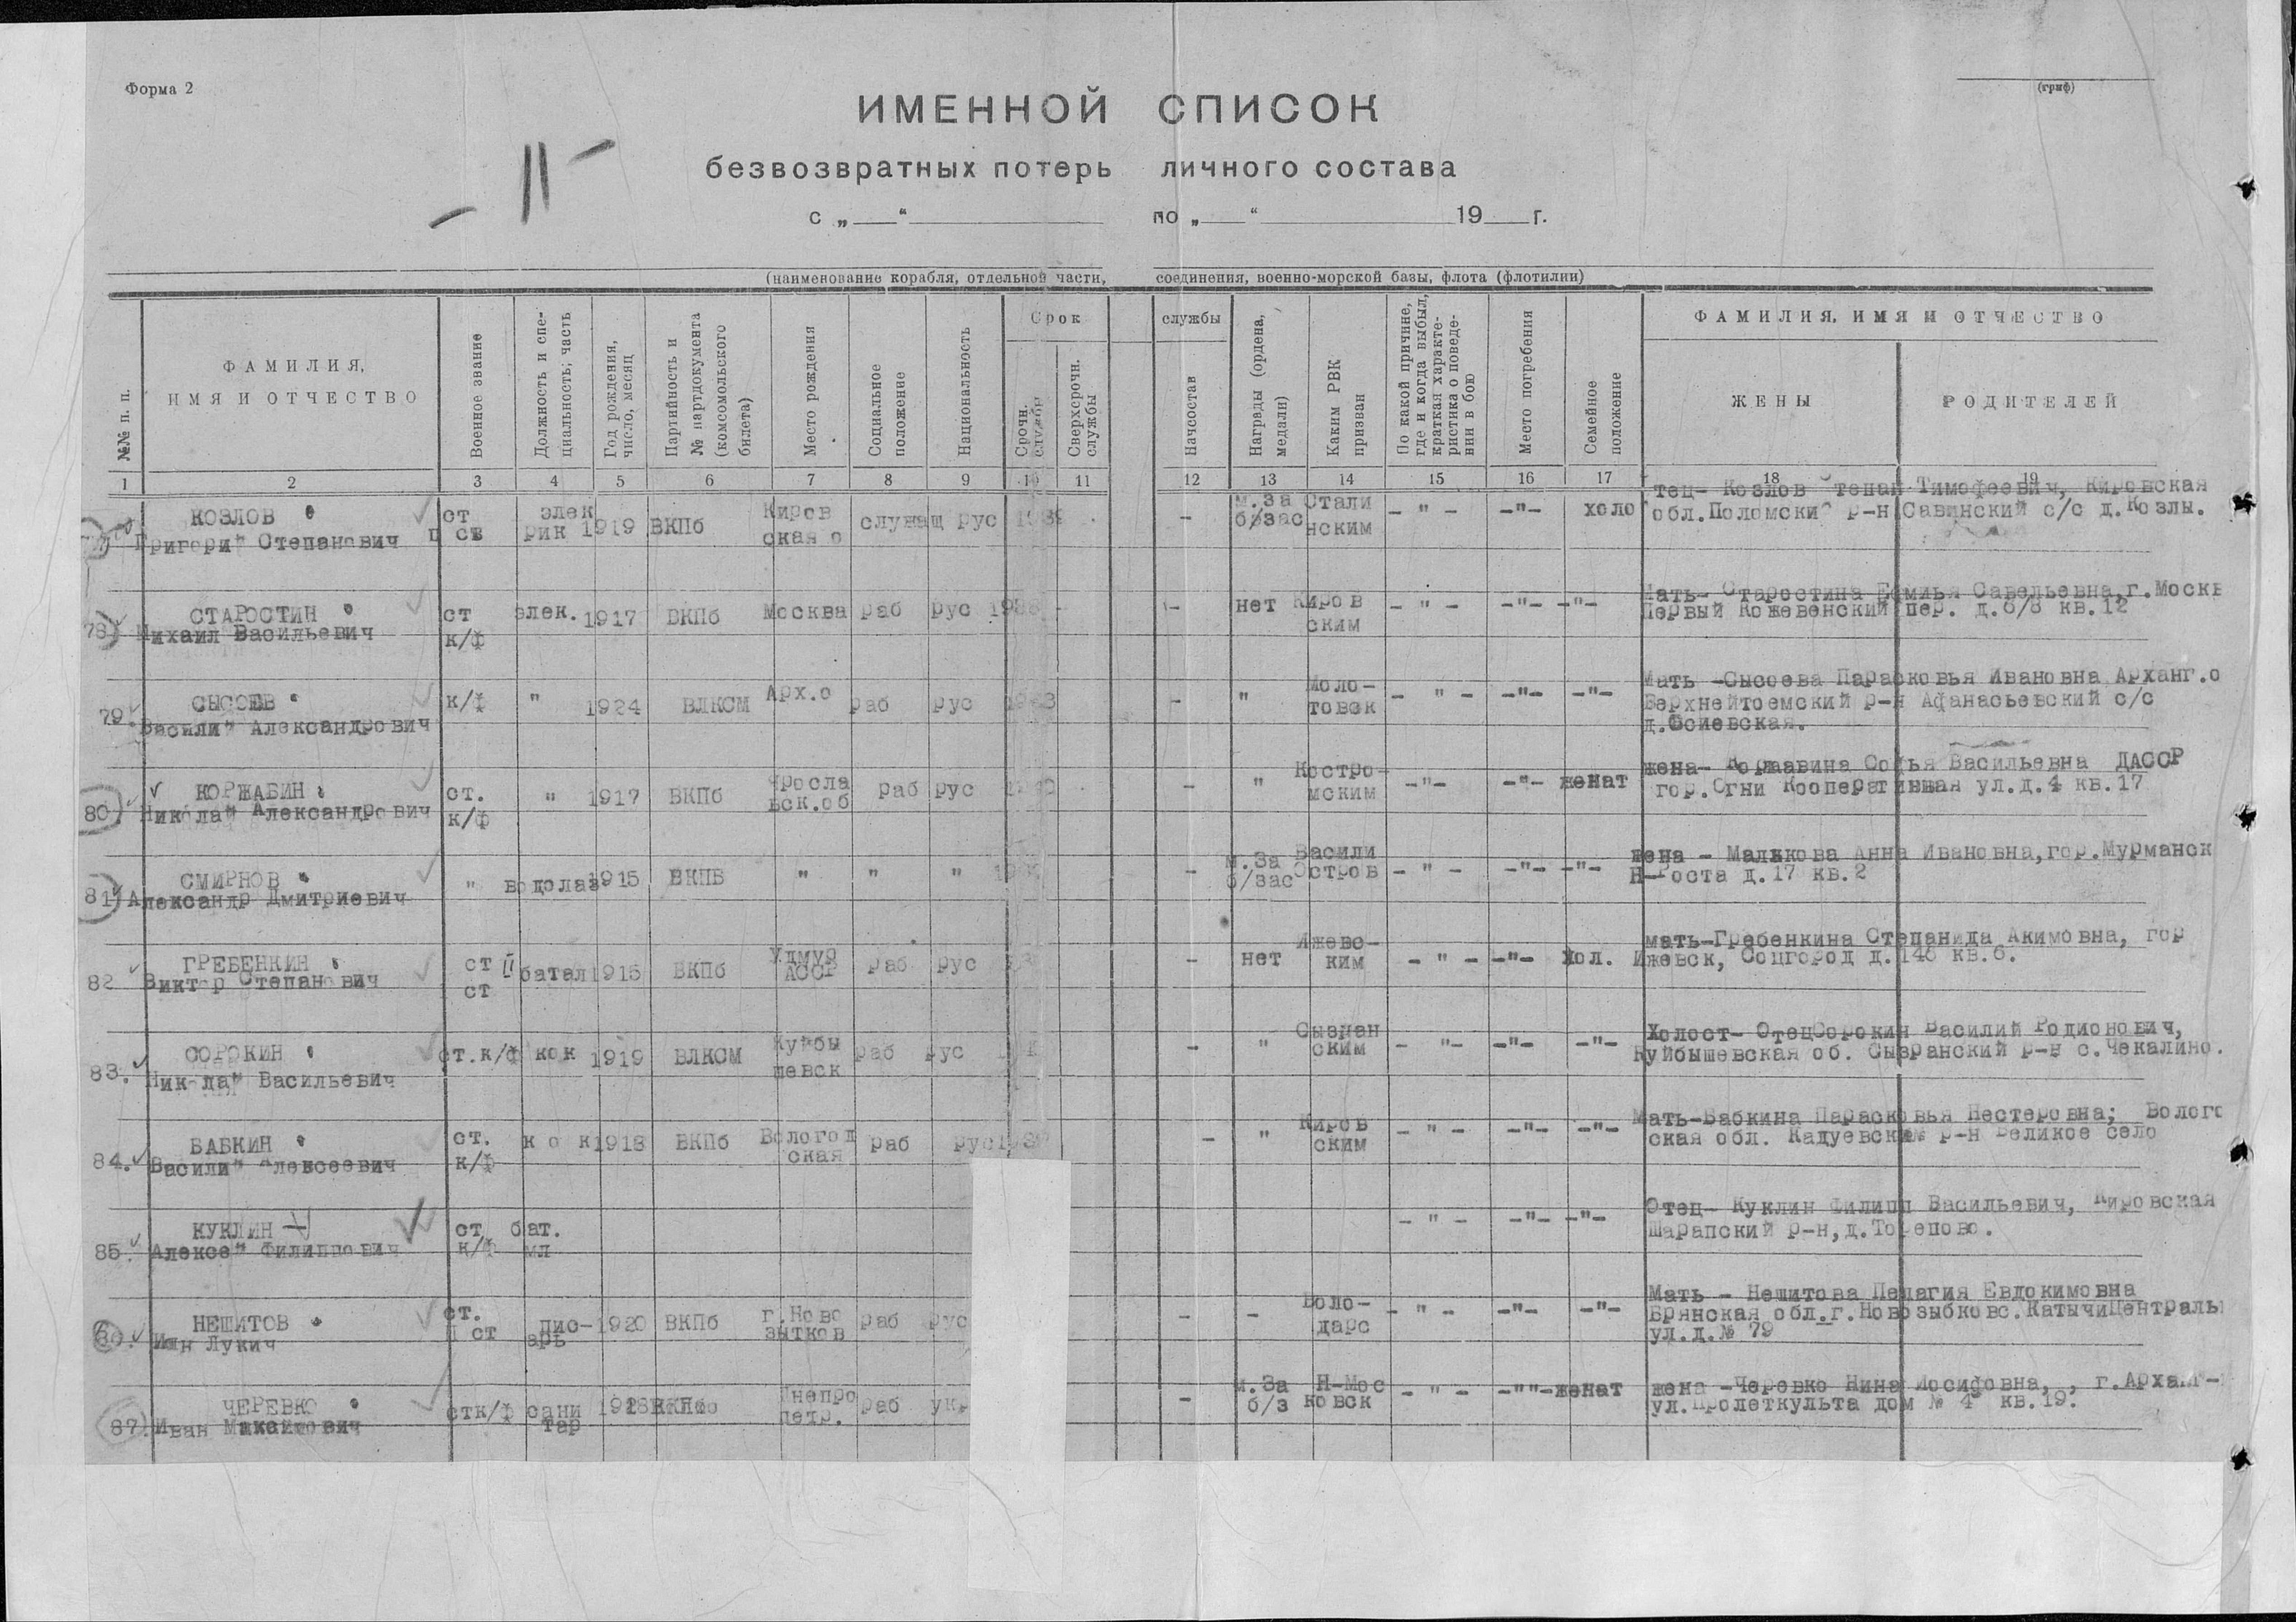 Форма 2
(гриф)
ИМЕННОЙ СПИСОК
- 11 -
безвозвратных потерь личного состава
с „ “ по „ “ 19 г.
(наименование корабля, отдельной части, соединения, военно-морской базы, флота (флотилии)
№№ п. п.
ФАМИЛИЯ,
ИМЯ И ОТЧЕСТВО
Военное звание
Должность и спе-
циальность; часть
Год рождения,
число, месяц
Партийность и
№ партдокумента
(комсомольского
билета)
Место рождения
Социальное
положение
Национальность
Срок службы
Срочн.
службы
Сверхсрочн.
службы
Начсостав
Награды (ордена,
медали)
Каким РВК
призван
По какой причине,
где и когда выбыл,
краткая характе-
ристика о поведе-
нии в бою
Место погребения
Семейное
положение
ФАМИЛИЯ, ИМЯ И ОТЧЕСТВО
ЖЕНЫ
РОДИТЕЛЕЙ
1 2 3 4 5 6 7 8 9 10 11 12 13 14 15 16 17 18 19
КОЗЛОВ ст элек 1919 ВКПб Киров служащ рус - м.За Стали - " - -"- холо тец- Козлов тепан Тимофеевич, Кировская
Григори Степанович П ст рик ская о б/зас нским обл.Поломски р-н Савинский с/с д.Козлы.
78 СТАРОСТИН ст элек. 1917 ВКПб Москва раб рус - нет Киров - " - -"- -"- Мать- Старостина Савельевна, г.Москв
Михаил Васильевич к/ф ским Первый Кожевенский пер. д.6/8 кв.12
79. СЫСОЕВ к/ф " 1924 ВЛКСМ Арх.о раб рус - " Моло- - " - -"- -"- Мать -Сысоева Парасковья Ивановна Арханг.о
Васили Александрович товск Верхнейтоемский р-н Афанасьевский с/с
д.Осиевская.
80. КОРЖАВИН ст. " 1917 ВКПб Яросла раб рус - " Костро- -"- -"- женат жена- Коржавина Софья Васильевна ДАССР
Никола Александрович к/ф вск.об мским гор.Огни Кооперативная ул.д.4 кв.17
81 СМИРНОВ " водолаз 1915 ВКПБ " " " - м.За Васили - " - -"- -"- жена - Малькова Анна Ивановна, гор.Мурманск
Александр Дмитриевич б/зас Остров Н-Роста д.17 кв.2
82 ГРЕБЕНКИН ст II батал 1915 ВКПб Удмур раб рус - нет Ижевс- - " - -"- хол. мать-Гребенкина Степанида Акимовна, гор
Виктор Степанович ст АССР ким Ижевск, Соцгород д.146 кв.6.
83. СОРОКИН ст.к/ф кок 1919 ВЛКСМ Куйбы раб рус - " Сызран - "- -"- -"- Холост- Отец Сорокин Василий Родионович,
Никола Васильевич шевск ским Куйбышевская об. Сызранский р-н с.Чекалино.
84. БАБКИН ст. к о к 1918 ВКПб Вологод раб рус - " Киров - " - -"- -"- Мать-Бабкина Парасковья Нестеровна; Волого
Васили Алексеевич к/ф ская ским ская обл. Кадуевский р-н Великое село
85. КУКЛИН ст бат. - " - -"- -"- Отец- Куклин Филипп Васильевич, Кировская
Алексе Филиппович к/ф мл Шарапский р-н, д.
86. НЕШИТОВ ст. пис- 1920 ВКПб г.Ново раб рус - - Воло- - " - -"- -"- Мать - Нешитова Пелагия Евдокимовна
Лукич П ст арь зытков дарс Брянская обл.г.Новозыбковс.КатычиЦентраль
ул.д.№ 79
87. ЧЕРЕВКО стк/ф сани 1918 ВКПб Днепро раб укр - м.За Н-Мос - " - -""- женат жена -Черевко Нина Иосифовна, , г.Арханг-
Иван тар петр. б/з ковск ул.Пролеткульта дом № 4 кв.19.